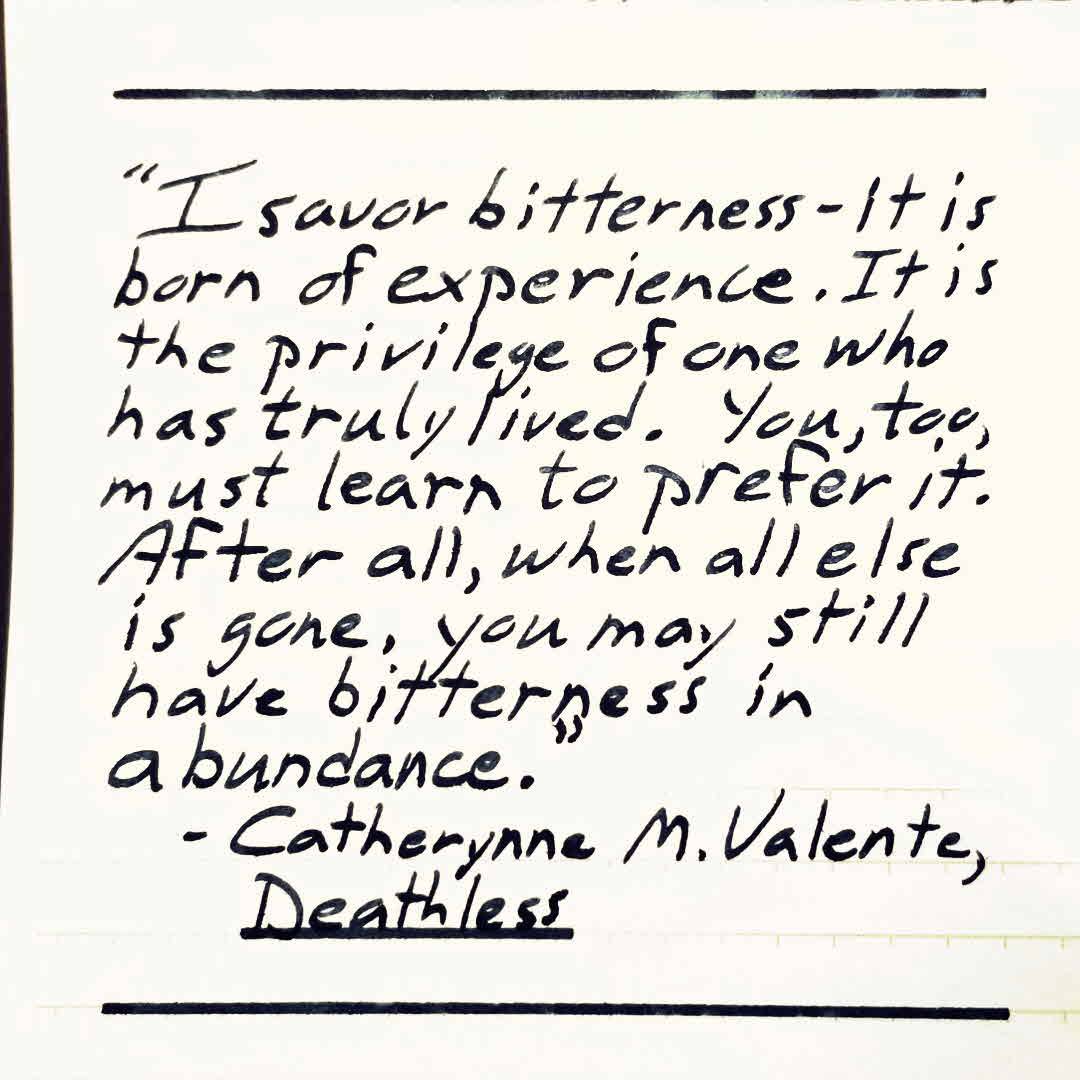 "I savor bitterness-It is
born of experience. It is
the privilege of one who
has truly lived. You, too,
must learn to prefer it.
After all, when all else
is gone, you may still
have bitterness in
abundance."
- Catherynne M. Valente,
Deathless